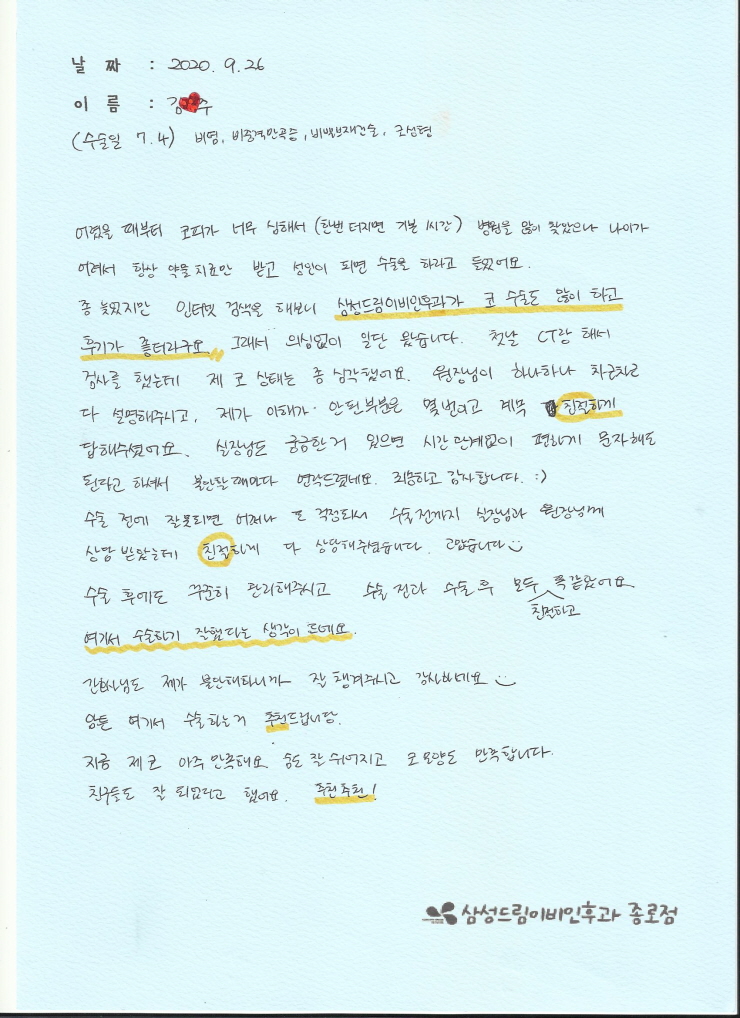 날 짜 : 2020. 9. 26
이 름 : 김 주
(수술일 7.4) 비염, 비중격만곡증, 비밸브재건술, 코성형
어렸을 때부터 코피가 너무 심해서 (한번 터지면 기본 1시간) 병원을 많이 찾았으나 나이가
어려서 항상 약물치료만 받고 성인이 되면 수술을 하라고 들었어요.
좀 늦었지만 인터넷 검색을 해보니 삼성드림이비인후과가 코 수술도 많이 하고
후기가 좋더라구요. 그래서 의심없이 일단 왔습니다. 첫날 CT랑 해서
검사를 했는데 제 코 상태는 좀 심각했어요. 원장님이 하나하나 차근차근
다 설명해주시고, 제가 이해가 안된부분은 몇번이고 계속 친절하게
답해주셨어요. 실장님도 궁금한거 있으면 시간관계없이 편하게 문자해도
된다고 하셔서 불안할때마다 연락드렸네요. 죄송하고 감사합니다. :)
수술 전에 잘못되면 어쩌나 또 걱정되서 수술전까지 실장님과 원장님께
상담 받았는데 친절하게 다 상담해주셨습니다. 고맙습니다
수술 후에도 꾸준히 관리해주시고 수술 전과 수술 후 모두 똑같았어요
친절하고
여기서 수술하기 잘했다는 생각이 드네요.
간호사님도 제가 불안해하니까 잘 챙겨주시고 감사하네요
암튼 여기서 수술하는거 추천드립니당.
지금 제 코 아주 만족해요 숨도 잘 쉬어지고 코 모양도 만족합니다.
친구들도 잘 되었다고 했어요. 추천추천!
삼성드림이비인후과 종로점